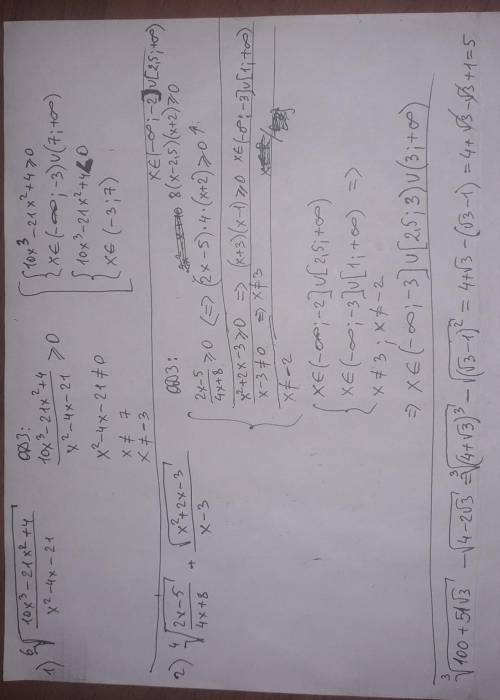 1) ⁶√((10x³-21x²+4)/(x²-4x-21))
ОДЗ:
(10x³-21x²+4)/(x²-4x-21) ≥ 0
x²-4x-21≠0
x ≠ 7
x ≠ -3
{ 10x³-21x²+4≥0
x∈(-∞;-3)∪(7;+∞)
{ 10x³-21x²+4<0
x∈(-3;7)
2) ⁴√((2x-5)/(4x+8)) + √(x²+2x-3)/(x-3)
ОДЗ:
8(x-2,5)(x+2)≥0 x∈(-∞;-2]∪[2,5;+∞)
(2x-5)/(4x+8) ≥0 (=) (2x-5)·4·(x+2)≥0
x²+2x-3≥0 => (x+3)(x-1)≥0 x∈(-∞;-3]∪[1;+∞)
x-3≠0 => x≠3
x≠-2
{ x∈(-∞;-2]∪[2,5;+∞)
x∈(-∞;-3]∪[1;+∞) =>
x≠3; x≠-2
=> x∈(-∞;-3]∪[2,5;3)∪(3;+∞)
³√(100+51√3) - √(4-2√3) = ³√((4+√3)³) - √((√3-1)²) = 4+√3-(√3-1) = 4+√3-√3+1=5